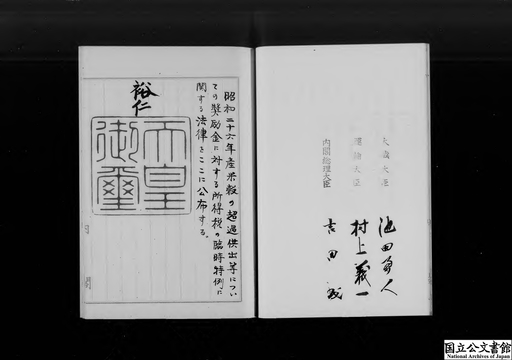 昭和二十六年産米穀の超過供出等につい
ての奨励金に対する所得税の臨時特例に
関する法律をここに公布する。
裕仁
天皇
御璽
大蔵大臣
運輸大臣
内閣総理大臣
池田勇人
村上義一
吉田茂
国立公文書館
National Archives of Japan